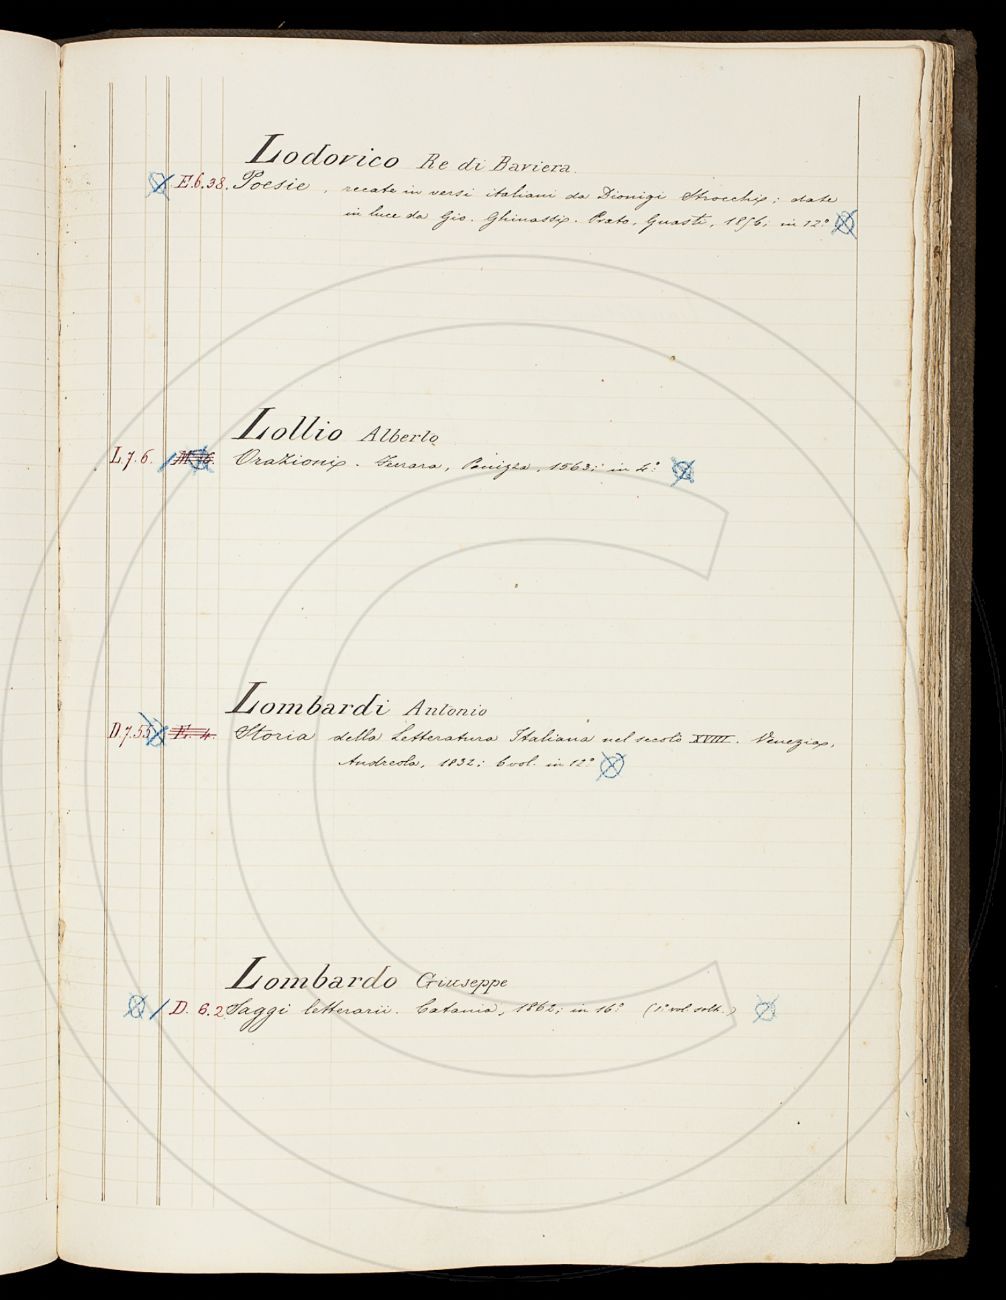 Lodovico Re di Baviera.
E.6.38. Poesie, recate in versi italiani da Dionigi Strocchi; date
in luce da Gio. Ghinassi. Prato, Guasti, 1856; in 12°
Lollio Alberto
L.7.6. Orazioni. Ferrara, Panizza, 1563; in 4°
Lombardi Antonio
D.7.55 Storia della Letteratura Italiana nel secolo XVIII. Venezia,
Andreola, 1832; 6 vol. in 12°
Lombardo Giuseppe
D. 6.2 Saggi letterarii. Catania, 1862; in 16° (1° vol. solt.)